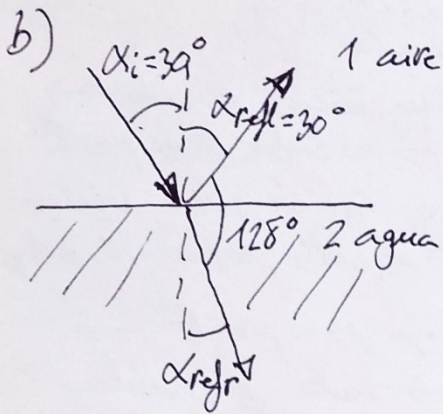 b)
αi=30°
1 aire
αrefl=30°
128°
2 agua
αrefr